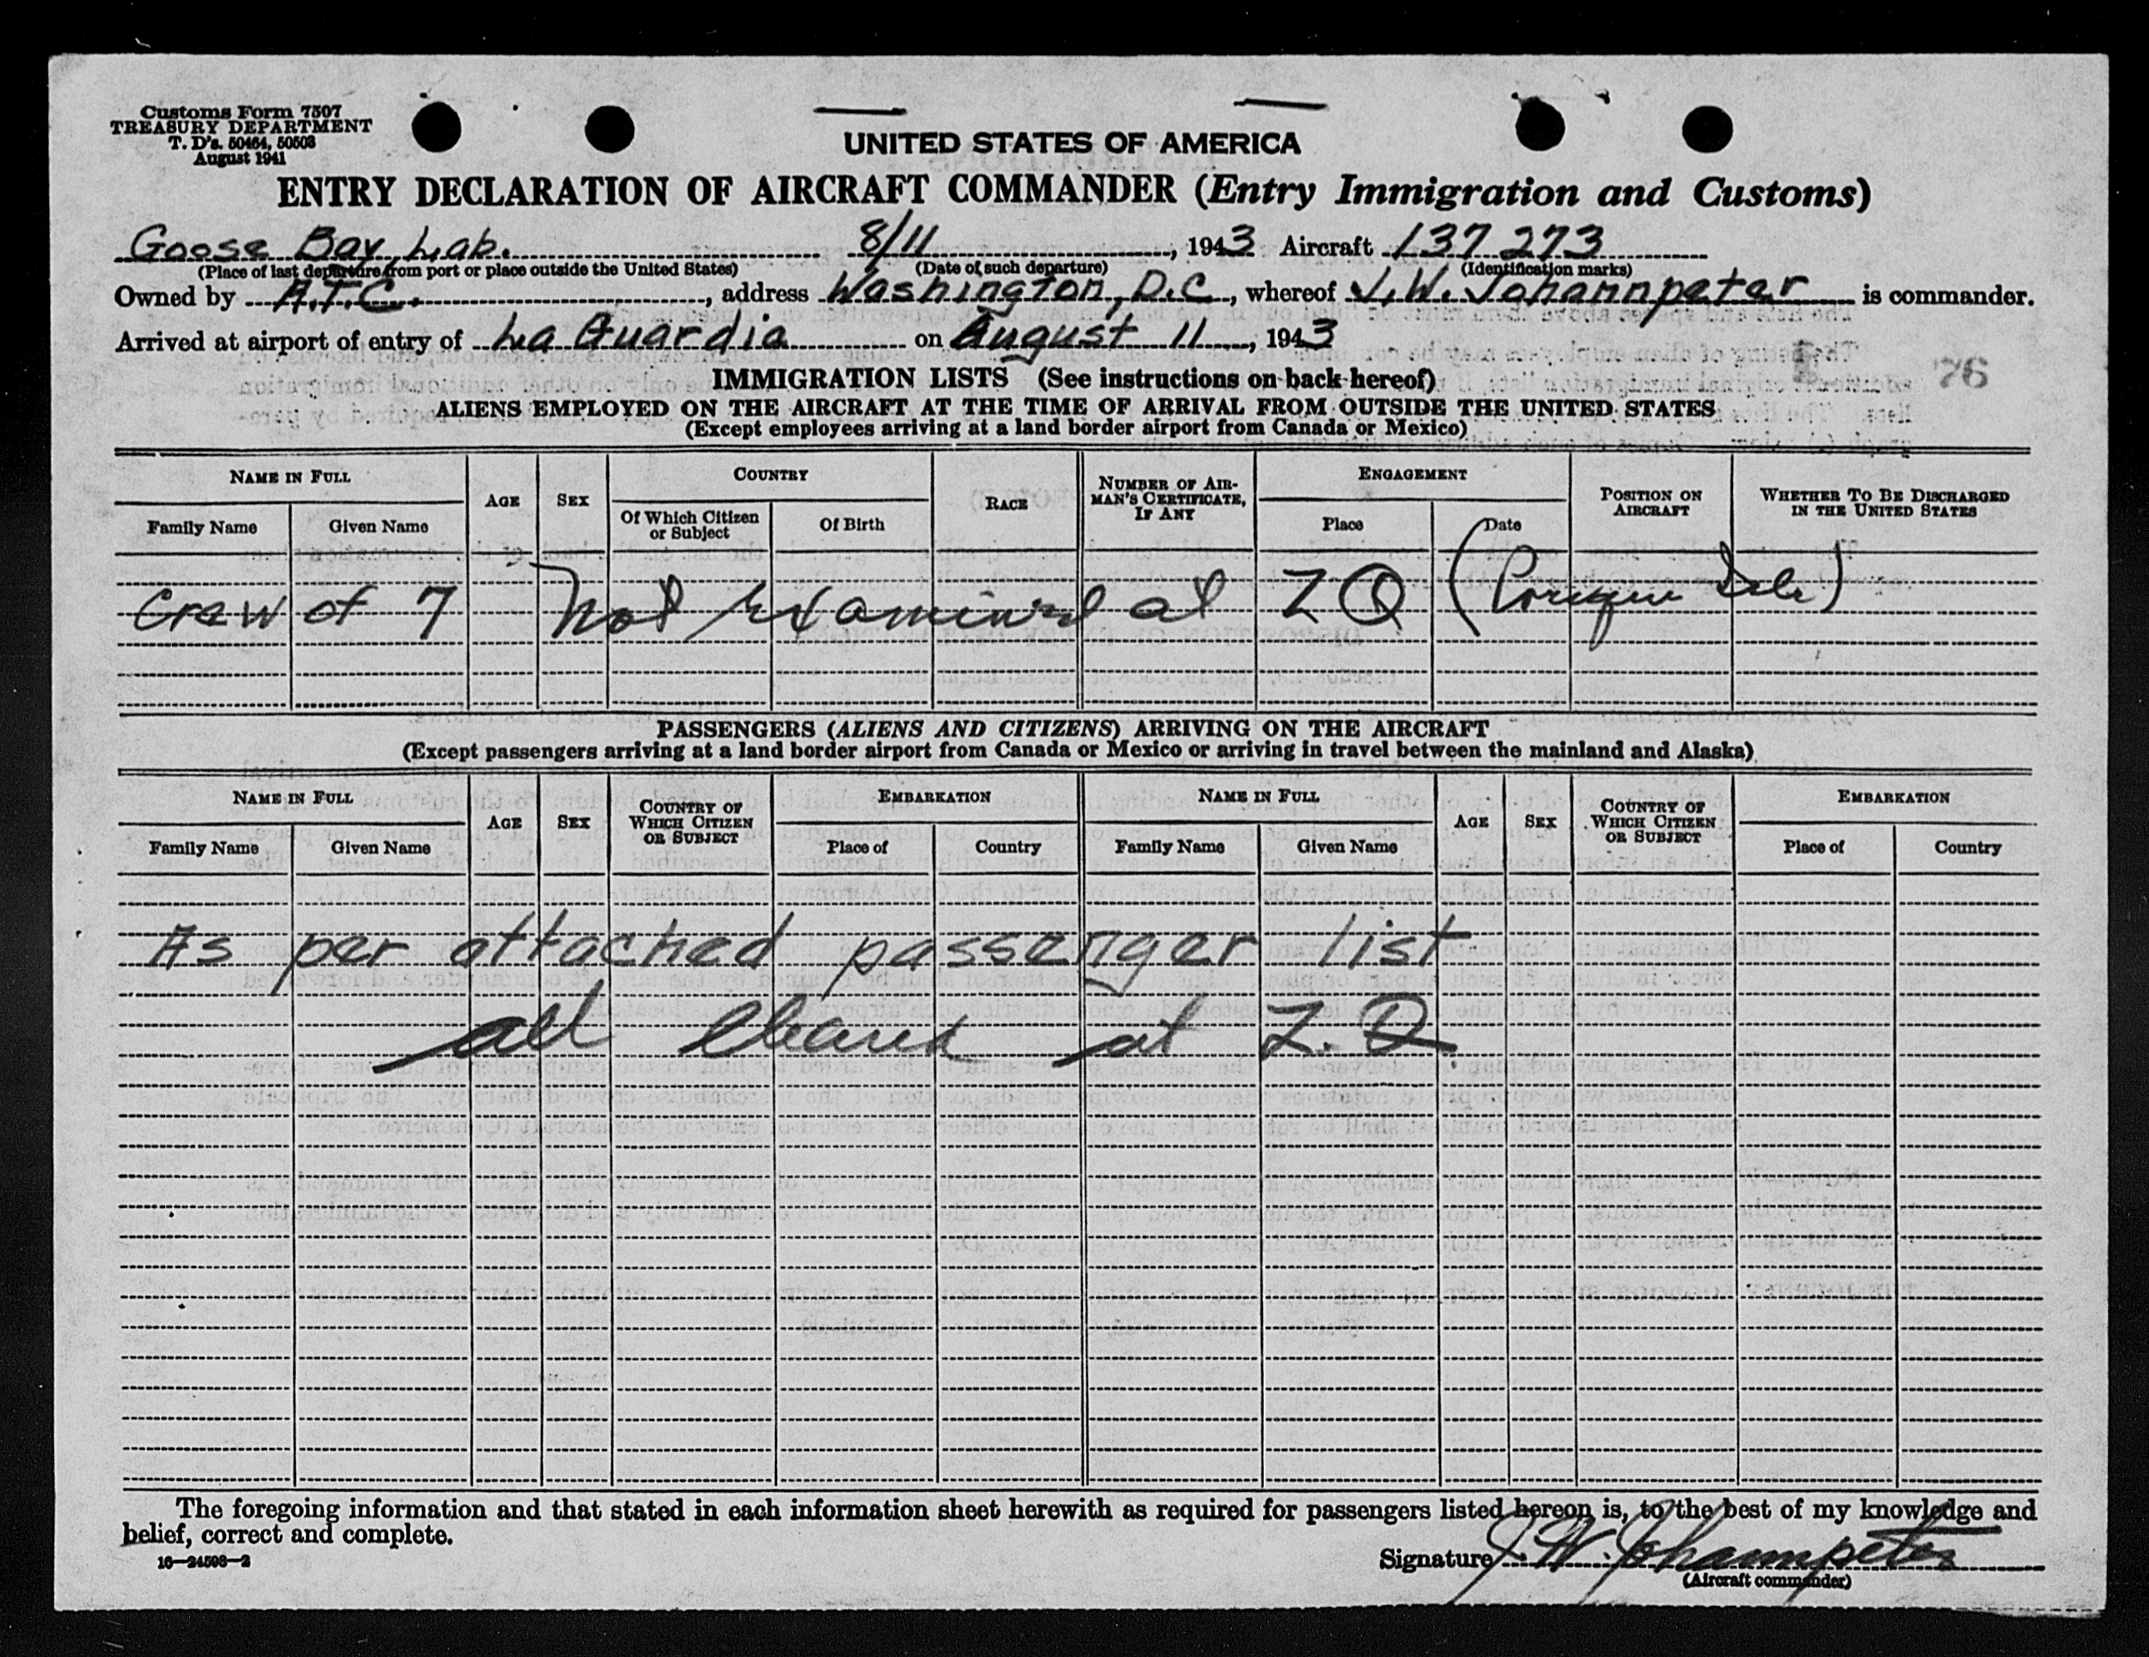 Customs Form 7507
TREASURY DEPARTMENT
T. D's. 50464, 50503
August 1941
UNITED STATES OF AMERICA
ENTRY DECLARATION OF AIRCRAFT COMMANDER (Entry Immigration and Customs)
Goose Bay, Lab. 8/11, 1943 Aircraft 137 273
(Place of last departure from port or place outside the United States) (Date of such departure) (Identification marks)
Owned by A.T.C., address Washington, D.C., whereof J.W. Johannpeter is commander.
Arrived at airport of entry of La Guardia on August 11, 1943
76
IMMIGRATION LISTS (See instructions on back hereof)
ALIENS EMPLOYED ON THE AIRCRAFT AT THE TIME OF ARRIVAL FROM OUTSIDE THE UNITED STATES
(Except employees arriving at a land border airport from Canada or Mexico)
NAME IN FULL AGE SEX COUNTRY RACE NUMBER OF AIRMAN'S CERTIFICATE, IF ANY ENGAGEMENT POSITION ON AIRCRAFT WHETHER TO BE DISCHARGED IN THE UNITED STATES
Family Name Given Name Of Which Citizen or Subject Of Birth Place Date
Crew of 7 Not Examined at ZQ (Presque Isle)
PASSENGERS (ALIENS AND CITIZENS) ARRIVING ON THE AIRCRAFT
(Except passengers arriving at a land border airport from Canada or Mexico or arriving in travel between the mainland and Alaska)
NAME IN FULL AGE SEX COUNTRY OF WHICH CITIZEN OR SUBJECT EMBARKATION NAME IN FULL AGE SEX COUNTRY OF WHICH CITIZEN OR SUBJECT EMBARKATION
Family Name Given Name Place of Country Family Name Given Name Place of Country
As per attached passenger list
all cleared at Z.Q.
The foregoing information and that stated in each information sheet herewith as required for passengers listed hereon is, to the best of my knowledge and
belief, correct and complete.
16—24598-2
Signature J. W. Johannpeter
(Aircraft commander)